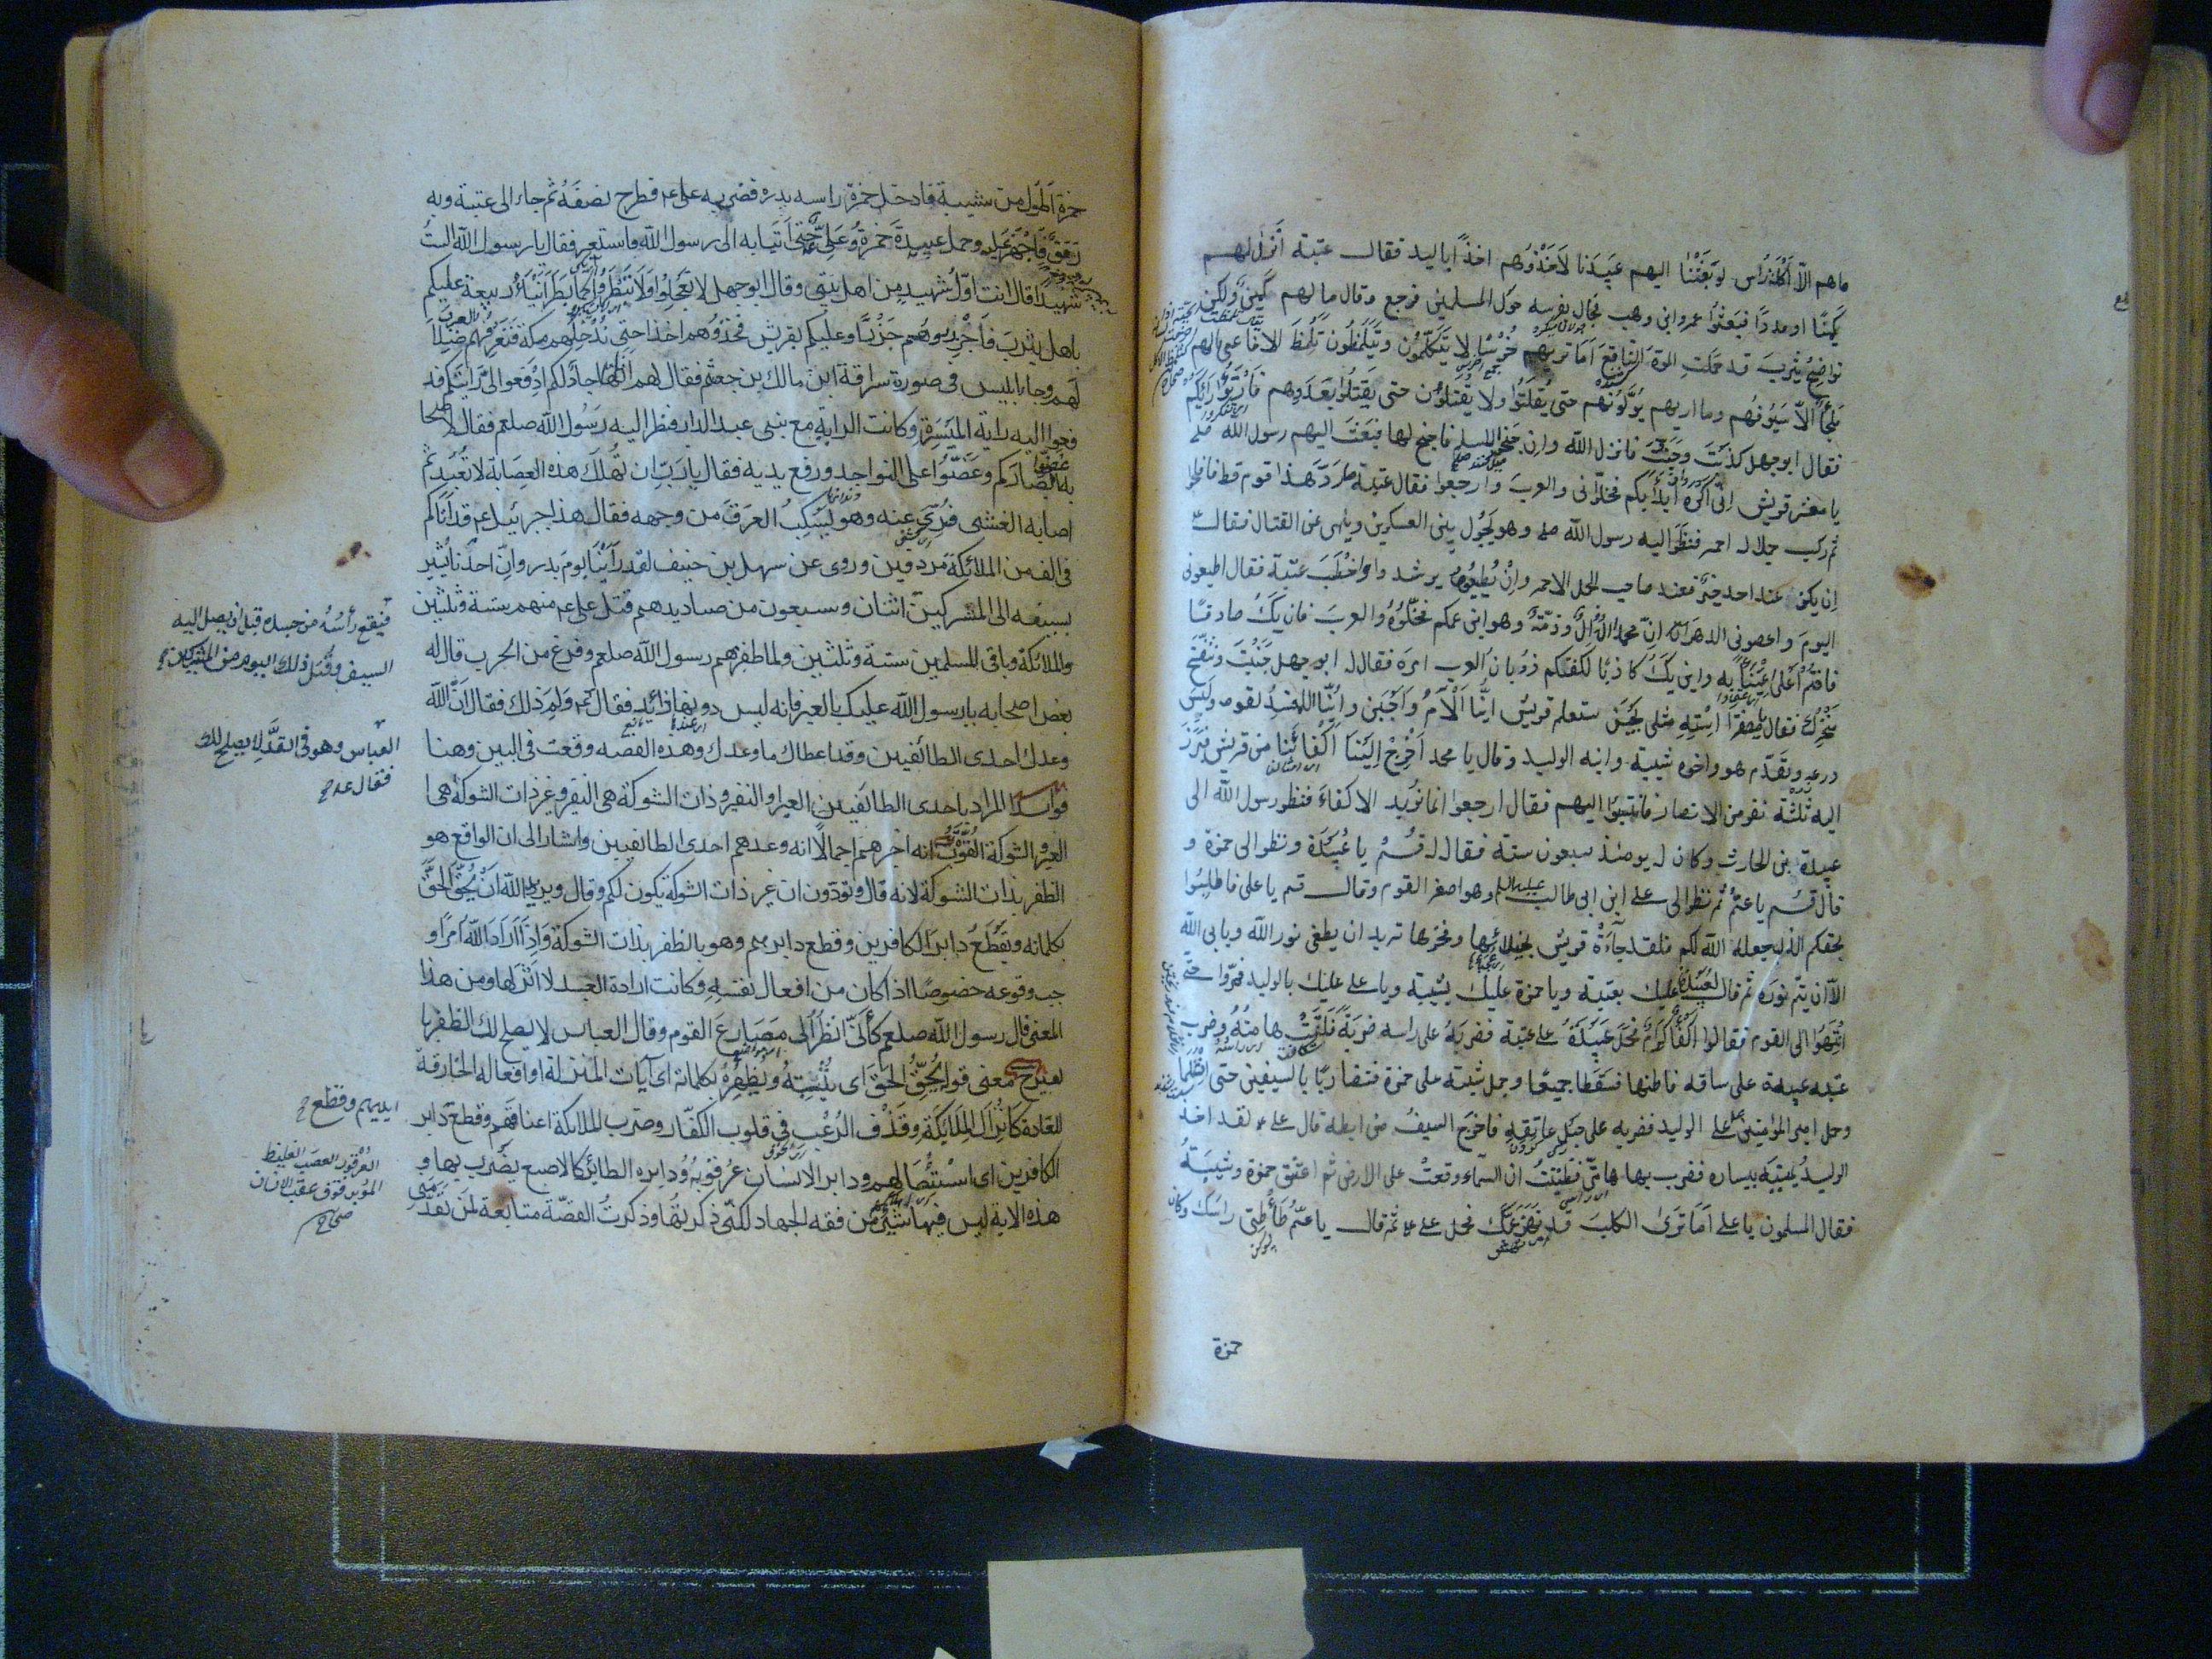 ماهم الّا اكلة راس لو بعثنا اليهم عبيدنا لاخذوهم اخذًا باليد فقال عتبة أترى لهم
كمينًا او مددًا فبعثوا عمرو ابن وهب فجال بفرسه حول المسلمين فرجع وقال ما لهم كمين ولكن
نواضح يثرب قد حملت الموت الناقع أما ترونهم خرسًا لا يتكلمون ويتلمظون تلمظ الافاعي مالهم
ملجأ الّا سيوفهم وما اريهم يولّون حتى يقتلوا ولا يقتلون حتى يقتلوا بعددهم فارتؤا رأيكم
فقال ابو جهل كذبت وجبنت فانزل الله وان جنحوا للسلم فاجنح لها فبعث اليهم رسول الله
يا معشر قريش انّي اكره ان ابدأ بكم فخلّوني والعرب وارجعوا فقال عتبة ما ردّ هذا قوم قط فافلحوا
ثم ركب جملا له احمر فنظر اليه رسول الله صلم وهو يجول بين العسكرين وينهى عن القتال فقال
ان يكن عند احد خير فعند صاحب الجمل الاحمر وان يطيعوه يرشدوا وخطب عتبة فقال اطيعوني
اليوم واعصوني الدهر انّ محمدًا له الّ وذمّة وهو ابن عمكم فخلّوه والعرب فان يك صادقًا
فانتم اعلى عينًا به وان يك كاذبًا كفتكم ذؤبان العرب امره فقال له ابو جهل جبنت وانتفخ
سحرك فقال يا مصفر استه مثلي يجبن ستعلم قريش ايّنا ألأم واجبن وايّنا المفسد لقومه ولبس
درعه وتقدّم هو واخوه شيبة وابنه الوليد وقال يا محمد اخرج الينا اكفائنا من قريش فبرز
اليه ثلثة نفر من الانصار فانتسبوا اليهم فقال ارجعوا انما نريد الاكفاء فنظر رسول الله الى
عبيدة بن الحارث وكان له يومئذ سبعون سنة فقال له قم يا عبيدة ونظر الى حمزة و
قال قم يا عمّ ثم نظر الى علي ابن ابي طالب عليه السلم وهو اصغر القوم وقال قم يا علي فاطلبوا
بحقكم الذي جعله الله لكم فلقد جاءت قريش بخيلائها وفخرها تريد ان يطفى نور الله ويابى الله
الّا ان يتم نوره ثم قال لعبيدة عليك بعتبة ويا حمزة عليك بشيبة ويا علي عليك بالوليد فمرّوا حتى
انتهوا الى القوم فقالوا اكفاء كرام فحمل عبيدة على عتبة فضربه على راسه ضربة فلقت بها هامته وضرب
عتبة عبيدة على ساقه فاطنها فسقطا جميعًا وحمل شيبة على حمزة فتضاربا بالسيفين حتى انثلما
وحمل امير المؤمنين علي على الوليد فضربه على حبل عاتقه فاخرج السيف من ابطه قال علي ع لقد اخذ
الوليد يمينه بيساره فضرب بها هامتي فظننت ان السماء وقعت على الارض ثم اعتنق حمزة وشيبة
فقال المسلمون يا علي اما ترى الكلب قد نهز عمك فحمل علي ع ثم قال يا عمّ طأطئ راسك وكان
حمزة
حمزة اطول من شيبة فادخل حمزة راسه بدره فضربه علي ع فطرح نصفه ثم جاء الى عتبة وبه
رمق فاجهز عليه وحمل عبيدة حمزة وعلي حتى اتيا به الى رسول الله فاستعبر فقال يا رسول الله الست
شهيدا قال انت اول شهيد من اهل بيتي وقال ابو جهل لا تعجلوا ولا تبطروا كما بطر ابناء ربيعة عليكم
باهل يثرب فاجزروهم جزرًا وعليكم بقريش فخذوهم اخذا حتى ندخلهم مكة فنعرفهم ضلا
لهم وجاء ابليس في صورة سراقة ابن مالك بن جعشم فقال لهم انا جار لكم ادفعوا اليّ رايتكم فد
فعوا اليه راية الميسرة وكانت الراية مع بني عبد الدار فنظر اليه رسول الله صلعم فقال لاصحا
به غضوا ابصاركم وعضّوا على النواجد ورفع يديه فقال يا ربّ ان تهلك هذه العصابة لا تعبد ثم
اصابه الغشى فسري عنه وهو يسكب العرق من وجهه فقال هذا جبرئيل ع قد اتاكم
في الف من الملائكة مردفين وروى عن سهل بن حنيف لقد راينا يوم بدر وانّ احدنا يشير
بسيفه الى المشركين اثنان وسبعون من صناديدهم قتل علي ع منهم ستة وثلثين
والملائكة وباقي المسلمين ستة وثلثين ولما ظفرهم رسول الله صلعم وفرغ من الحرب قال له
بعض اصحابه يا رسول الله عليك بالعير فانه ليس دونها فائد فقال ع ولم ذلك فقال انّ الله
وعدك احدى الطائفين وقد اعطاك ما وعدك وهذه القصة وقعت في البين وهنا
المراد باحدى الطائفين العير او النفير وذات الشوكة هي النفير وغير ذات الشوكة هي ا
لعير والشوكة القوة انه اخبرهم اجمالًا انه وعدهم احدى الطائفيين واشار الى ان الواقع هو
الظفر بذات الشوكة لانه قال وتودون ان غير ذات الشوكة يكون لكم وقال ويريد الله ان يحق الحق
بكلماته ويقطع دابر الكافرين وقطع دابرهم وهو بالظفر بذات الشوكة واذا اراد الله امرًا و
جب وقوعه خصوصًا اذا كان من افعال نفسه وكانت ارادة العبد لا اثر لها ومن هذا
المعنى قال رسول الله صلعم كأنّي انظر الى مصارع القوم وقال العباس لا يصلح لك الظفر با
لعير ح معنى قوله يحق الحق اى يثبته ويظهره بكلماته اى آيات المنزلة او افعاله الخارقة
للعادة كانزال الملائكة وقذف الرعب في قلوب الكفار وضرب الملائكة اعناقهم وقطع دابر
الكافرين اى استئصالهم ودابر الانسان عرقوبه ودابره الطائر كالاصبع يضرب بها و
هذه الاية ليس فيها شيئ من فقه الجهاد لكنّي ذكرتها وذكرت القصّة متابعة لمن تقد
مني
فيقع رأسه من جسده قبل ان يصل اليه
السيف وقتل ذلك اليوم من المشركين
العباس وهو في القدّ لا يصلح لك
فقال ع
ايديهم وقطع
العرقوب العصب الغليظ
الموتر فوق عقب الانسان
صحاح